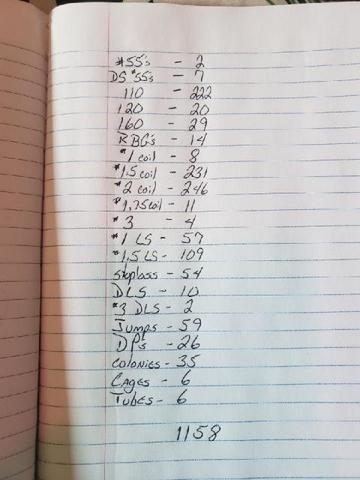 #55's - 2
DS #55's - 7
110 - 222
120 - 20
160 - 29
RBG's - 14
#1 coil - 8
#1.5 coil - 231
#2 coil - 246
#1.75 coil - 11
#3 - 4
#1 LS - 57
#1.5 LS - 109
stoploss - 54
DLS - 10
#3 DLS - 2
Jumps - 59
DP's - 26
Colonies - 35
Cages - 6
Tubes - 6
1158